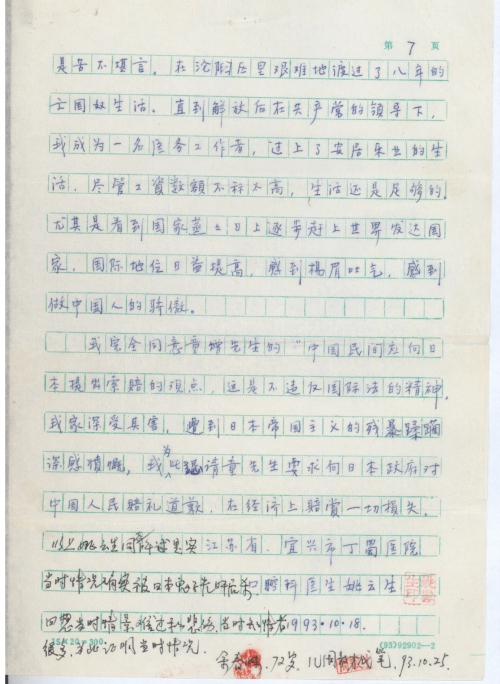 第 7 页
是苦不堪言。在沦陷区里艰难地渡过了八年的
亡国奴生活。直到解放后在共产党的领导下，
我成为一名医务工作者，过上了安居乐业的生
活，尽管工资数额不称不高，生活还是足够的。
尤其是看到国家蒸蒸日上逐步赶上世界发达国
家，国际地位日益提高，感到扬眉吐气，感到
做中国人的骄傲。
我完全同意童增先生的"中国民间应向日
本提出索赔的观点，这是不违反国际法的精神。
我家深受其害，遭到日本帝国主义的残暴蹂躏
深感愤慨，我为此请童先生要求向日本政府对
中国人民赔礼道歉，在经济上赔赏一切损失。
以上姚云生同志 江苏省，宜兴市丁蜀医院
当时情况确实被日本鬼子先奸后杀 口腔科医生姚云生
回想当时情景 当时 1993.10.18.
很多 当时情况
35×20=300 (93)92902—2
72岁 笔，93.10.25.